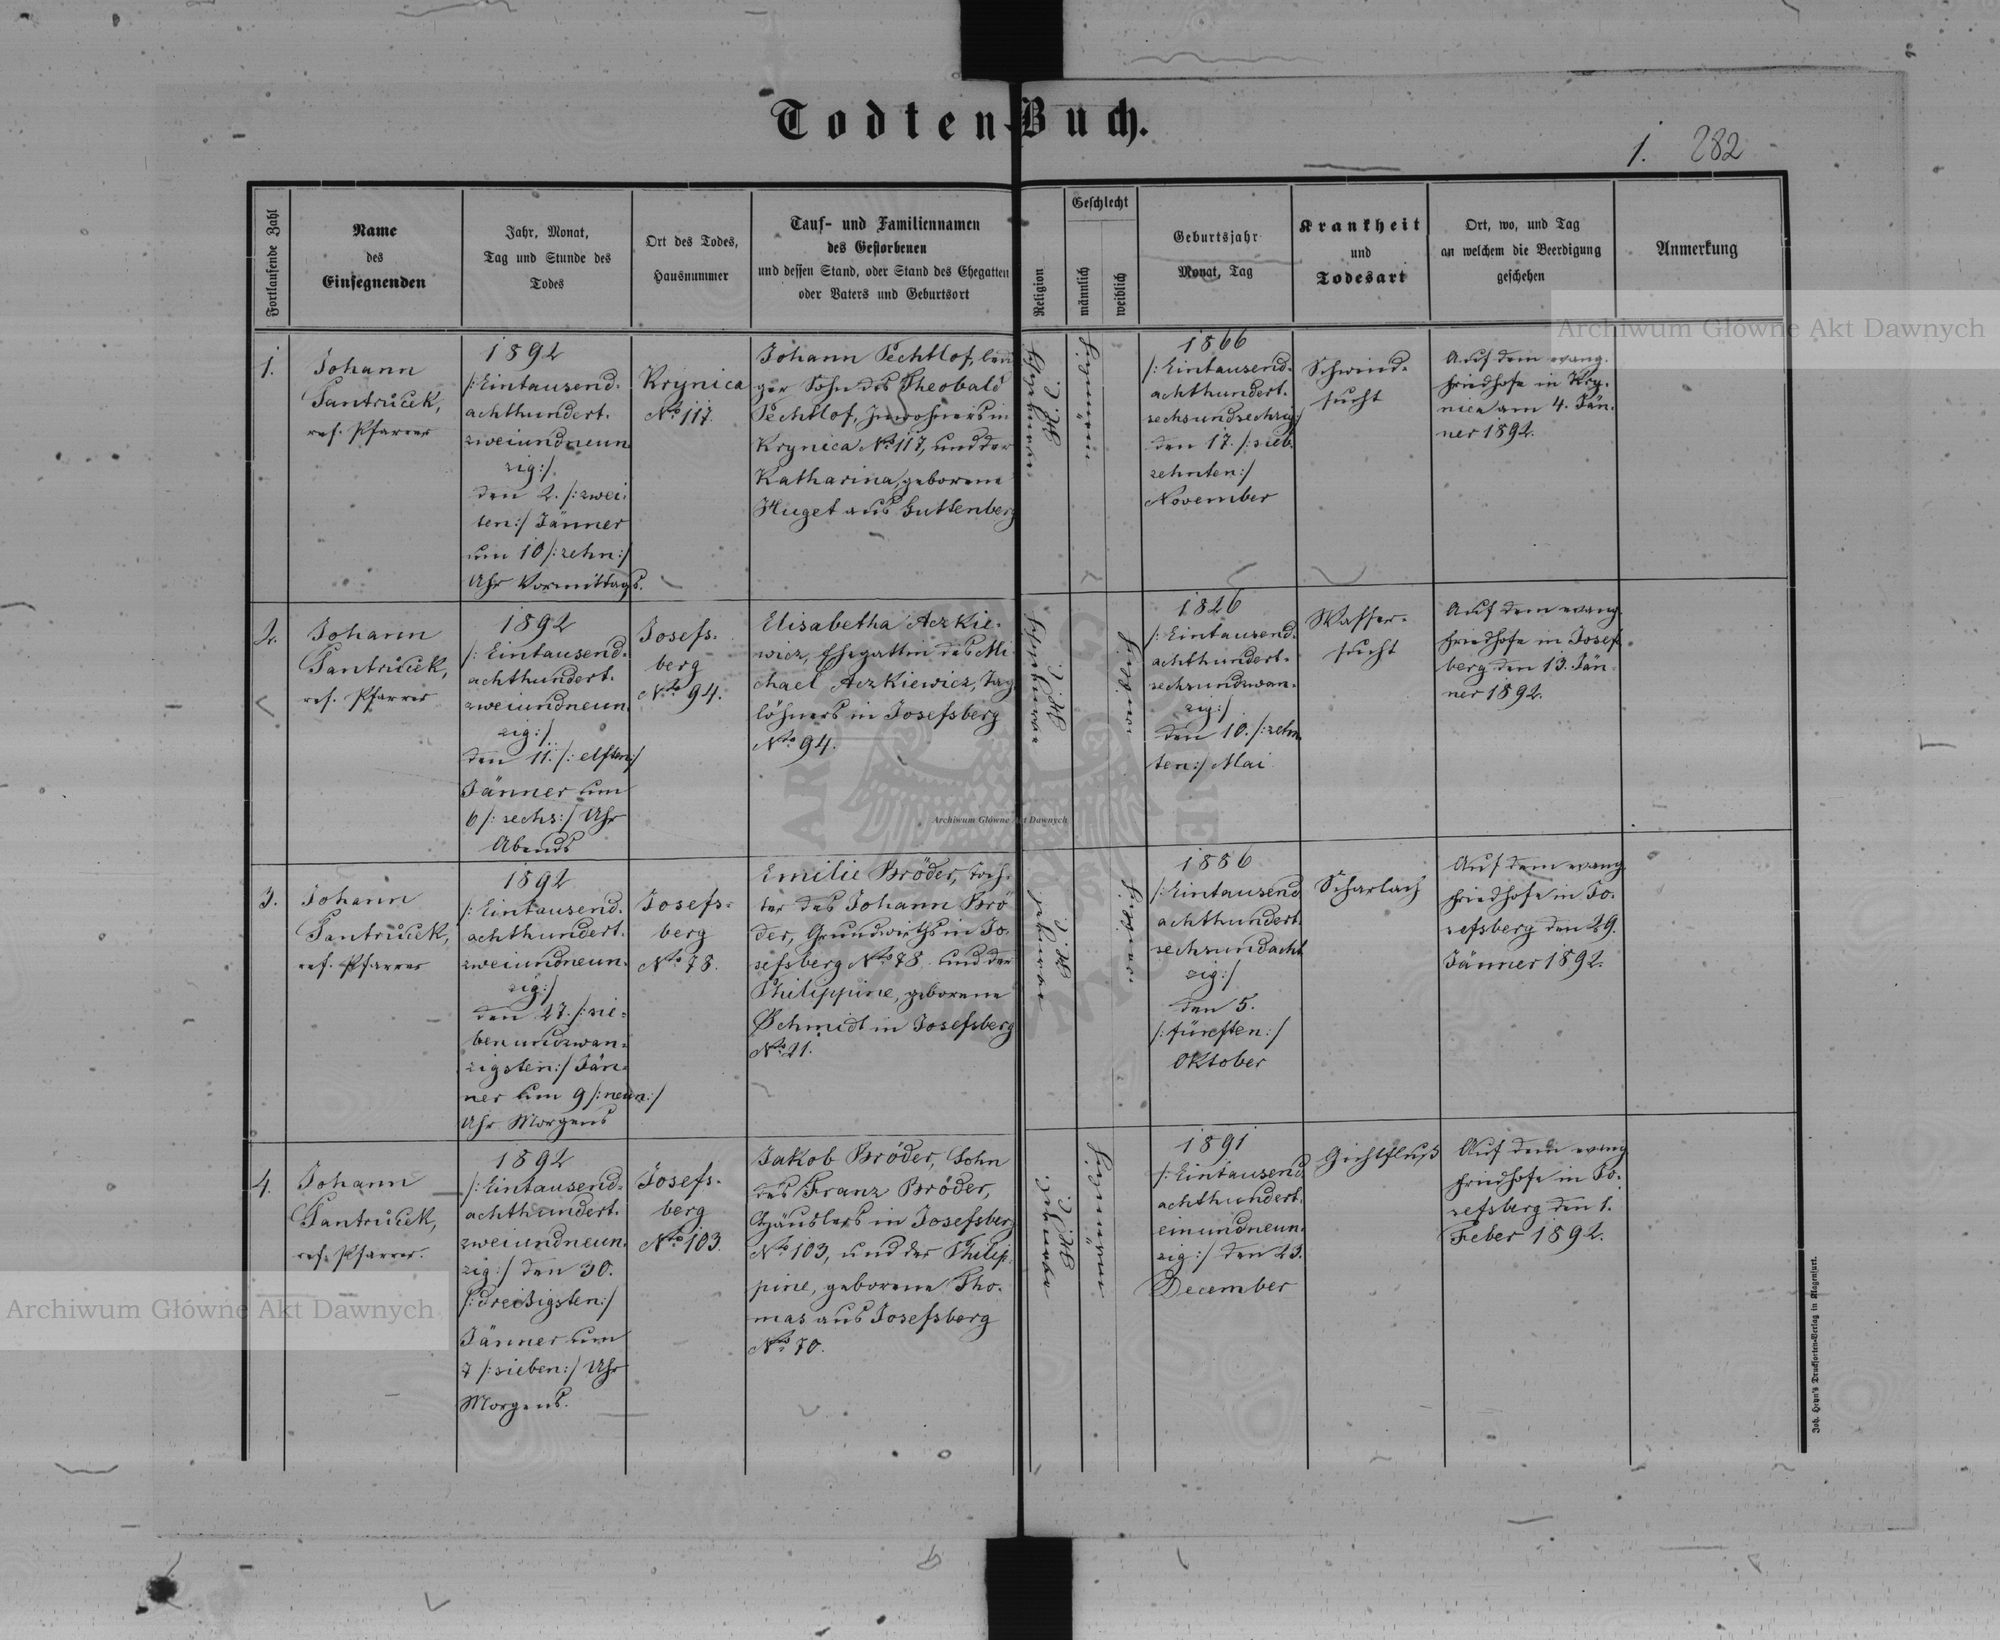 Todten-Buch.
1. 282
Fortlaufende Zahl
Name
des
Einsegnenden
Jahr, Monat,
Tag und Stunde des
Todes
Ort des Todes,
Hausnummer
Tauf- und Familiennamen
des Gestorbenen
und dessen Stand, oder Stand des Ehegatten
oder Vaters und Geburtsort
Religion
Geschlecht
männlich
weiblich
Geburtsjahr
Monat, Tag
Krankheit
und
Todesart
Ort, wo, und Tag
an welchem die Beerdigung
geschehen
Anmerkung
Archiwum Główne Akt Dawnych
1.
Johann
Pantrůček,
ref. Pfarrer
1892
/:Eintausend-
achthundert-
zweiundneun
zig:/
den 2. /:zwei-
ten:/ Jänner
um 10 /:zehn:/
Uhr Vormittags.
Krynica
No 117.
Johann Pechtlof, led
ger Sohn des Theobald
Pechtlof, Inwohners in
Krynica No 117, und der
Katharina, geborene
Huget aus Guttenberg
H. C.
männlich
1866
/:Eintausend-
achthundert-
sechsundsechzig:/
den 17. /:sieb-
zehnten:/
November
Schwind-
sucht
Auf dem evang.
Friedhofe in Kry-
nica am 4. Jän-
ner 1892.
2.
Johann
Pantrůček,
ref. Pfarrer
1892
/:Eintausend-
achthundert-
zweiundneun-
zig:/
den 11. /:elften:/
Jänner um
6 /:sechs:/ Uhr
Abends
Josefs-
berg
No 94.
Elisabetha Aczkie-
wicz, Ehegattin des Mi-
chael Aczkiewicz, Tag
löhners in Josefsberg
No 94.
H. C.
weiblich
1826
/:Eintausend-
achthundert-
sechsundzwan-
zig:/
den 10. /:zehn-
ten:/ Mai
Wasser-
sucht
Auf dem evang.
Friedhofe in Josef
berg den 13. Jän-
ner 1892.
3.
Johann
Pantrůček,
ref. Pfarrer
1892
/:Eintausend-
achthundert-
zweiundneun-
zig:/
den 27. /:sie-
benundzwan-
zigsten:/ Jän-
ner um 9 /:neun:/
Uhr Morgens
Josefs-
berg
No 78.
Emilie Bröder, Toch-
ter des Johann Brö
der, Grundwirths in Jo-
sefsberg No 78 und der
Philippine, geborene
Schmidt in Josefsberg
No 21.
H. C.
weiblich
1886
/:Eintausend
achthundert-
sechsundacht
zig:/
den 5.
/:fünften:/
Oktober
Scharlach
Auf dem evang
Friedhofe in Jo-
sefsberg den 29.
Jänner 1892.
4.
Johann
Pantrůček,
ref. Pfarrer.
1892
/:Eintausend-
achthundert-
zweiundneun-
zig:/ den 30.
/:dreißigsten:/
Jänner um
7 /:sieben:/ Uhr
Morgens.
Josefs-
berg
No 103.
Jakob Bröder, Sohn
des Franz Bröder,
Häuslers in Josefsberg
No 103, und der Philip
pine, geborene Tho-
mas aus Josefsberg
No 70.
H. C.
männlich
1891
/:Eintausend
achthundert-
einundneun-
zig:/ den 23.
December
Gichtfluß
Auf dem evang
Friedhofe in Jo-
sefsberg den 1.
Feber 1892.
Archiwum Główne Akt Dawnych
Archiwum Główne Akt Dawnych
Joh. Heyn's Drucksorten-Verlag in Klagenfurt.